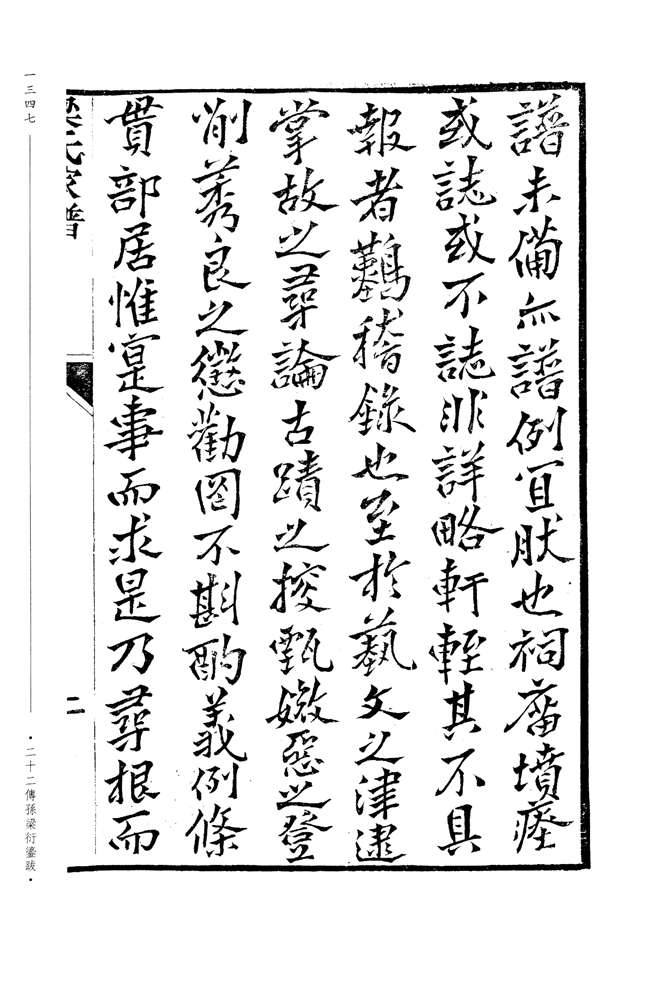 譜未備亦譜例宜肰也祠廇墳塋
或誌或不誌非詳略軒輊其不具
報者囏稽錄也至於蓺文之津逮
掌故之尋論古蹟之按甄媺惡之登
削莠良之懲勸罔不斟酌義例條
貫部居惟寔事而求是乃尋根而
梁氏家譜
二
一三四七
·二十二傳孫梁衍鎏跋·